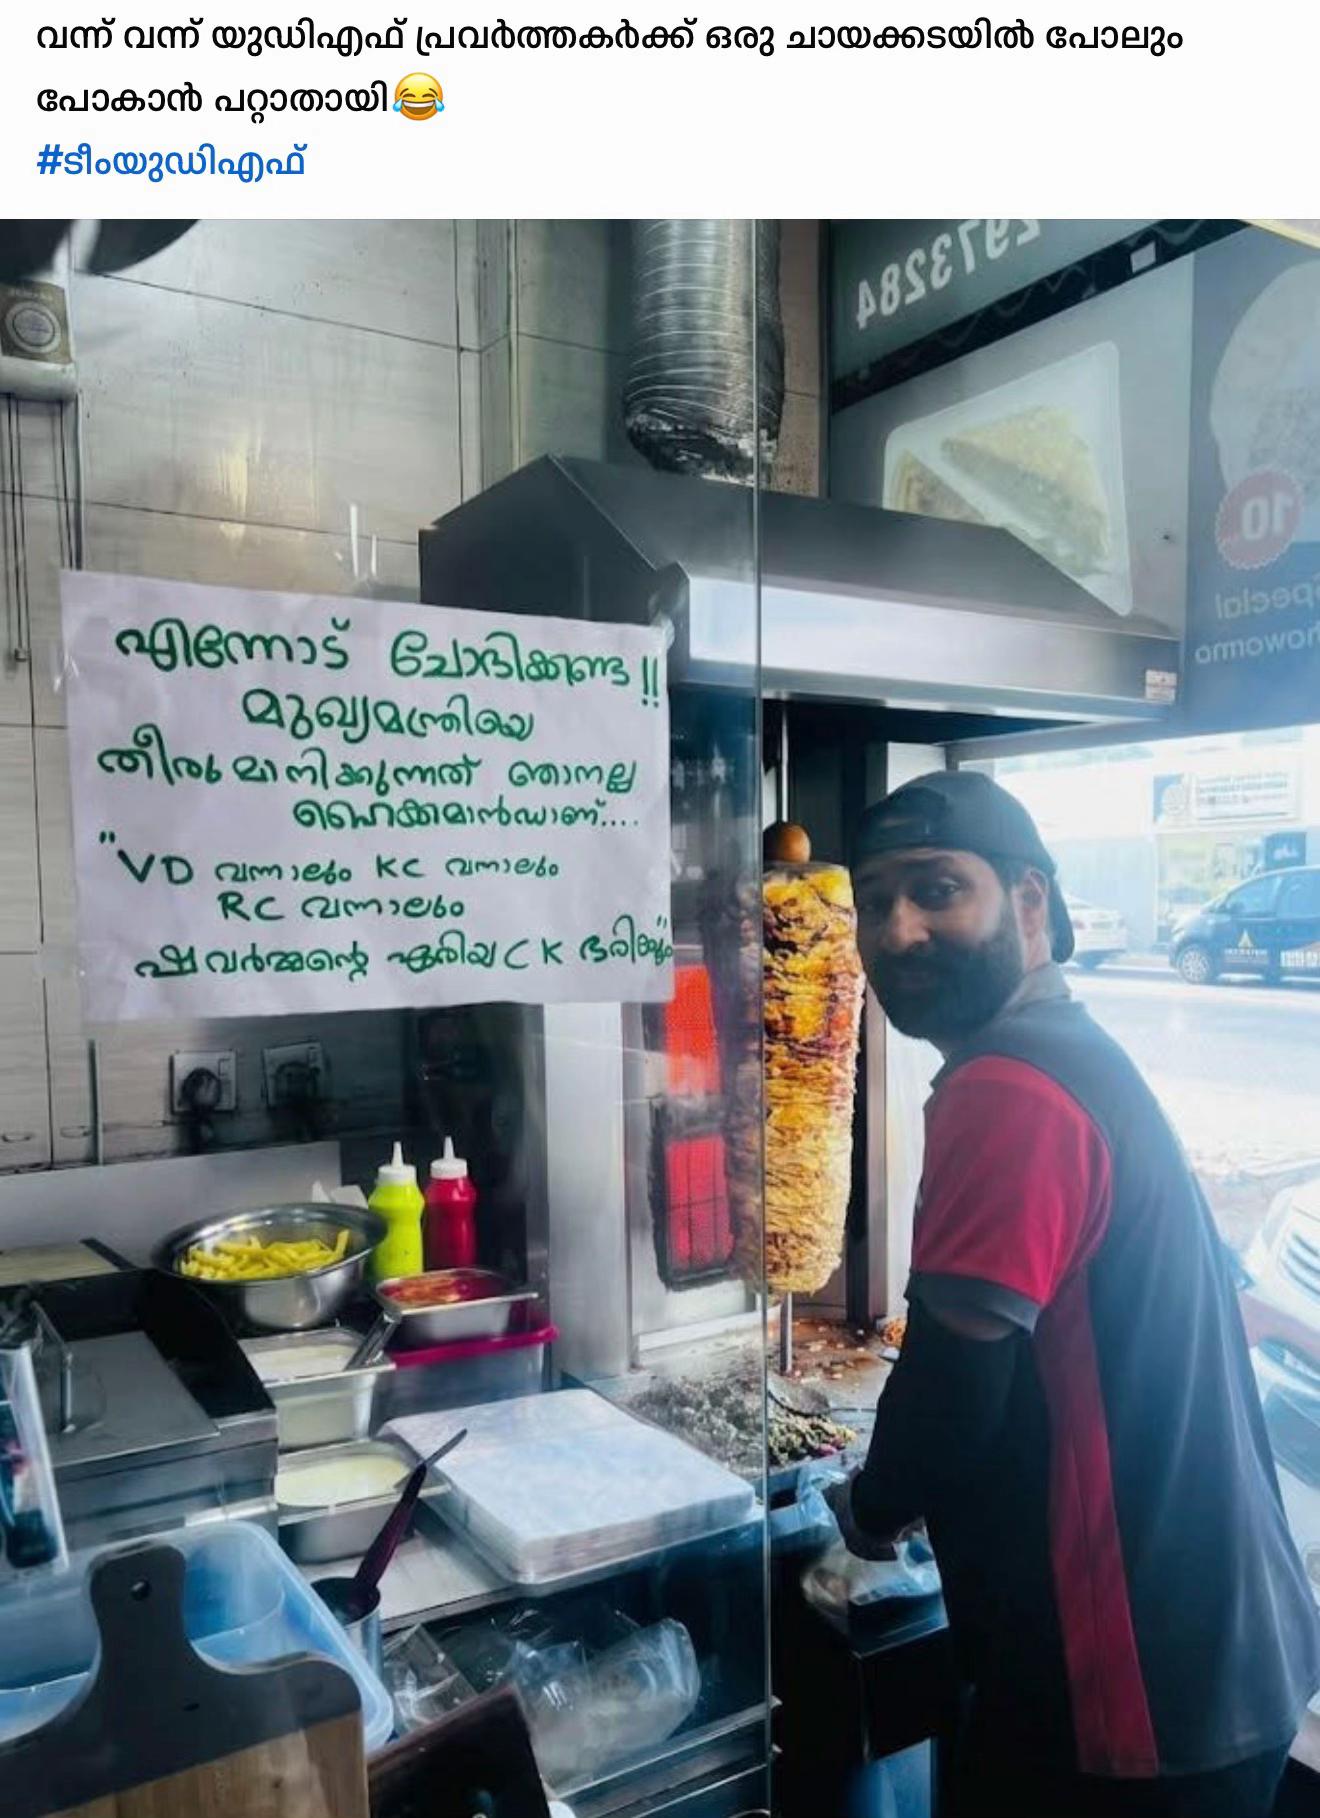 വന്ന് വന്ന് യുഡിഎഫ് പ്രവർത്തകർക്ക് ഒരു ചായക്കടയിൽ പോലും
പോകാൻ പറ്റാതായി😂
#ടീംയുഡിഎഫ്
2973284
എന്നോട് ചോദിക്കണ്ട!!
മുഖ്യമന്ത്രിയെ
തീരുമാനിക്കുന്നത് ഞാനല്ല
ഹൈക്കമാൻഡാണ്....
"VD വന്നാലും KC വന്നാലും
RC വന്നാലും
ഷവർമ്മന്റെ ഏരിയ CK ഭരിക്കും"
10